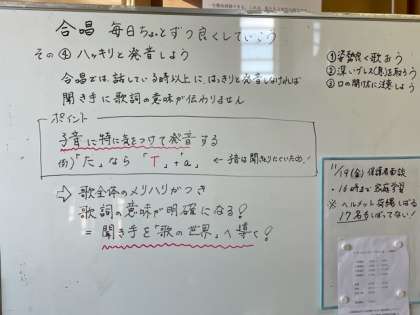 合唱 毎日ちょっとずつ良くしていこう
その④ ハッキリと発音しよう
合唱では、話している時以上に、はっきりと発音しなければ
聞き手に歌詞の意味が伝わりません
ポイント
子音に特に気をつけて発音する
例)「た」なら「T」+「a」 ← 子音は聞きとりにくいため!
⇨ 歌全体のメリハリがつき
歌詞の意味が明確になる!
= 聞き手を「歌の世界」へ導く!
①姿勢良く歌おう
②深いブレス(息)を取ろう
③口の開け方に注意しよう
11/19(金)保護者面談
・16時まで家庭学習
※ヘルメット荷鏡しばる
17名もしばってない!